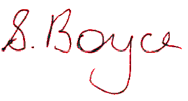 S. Boyce